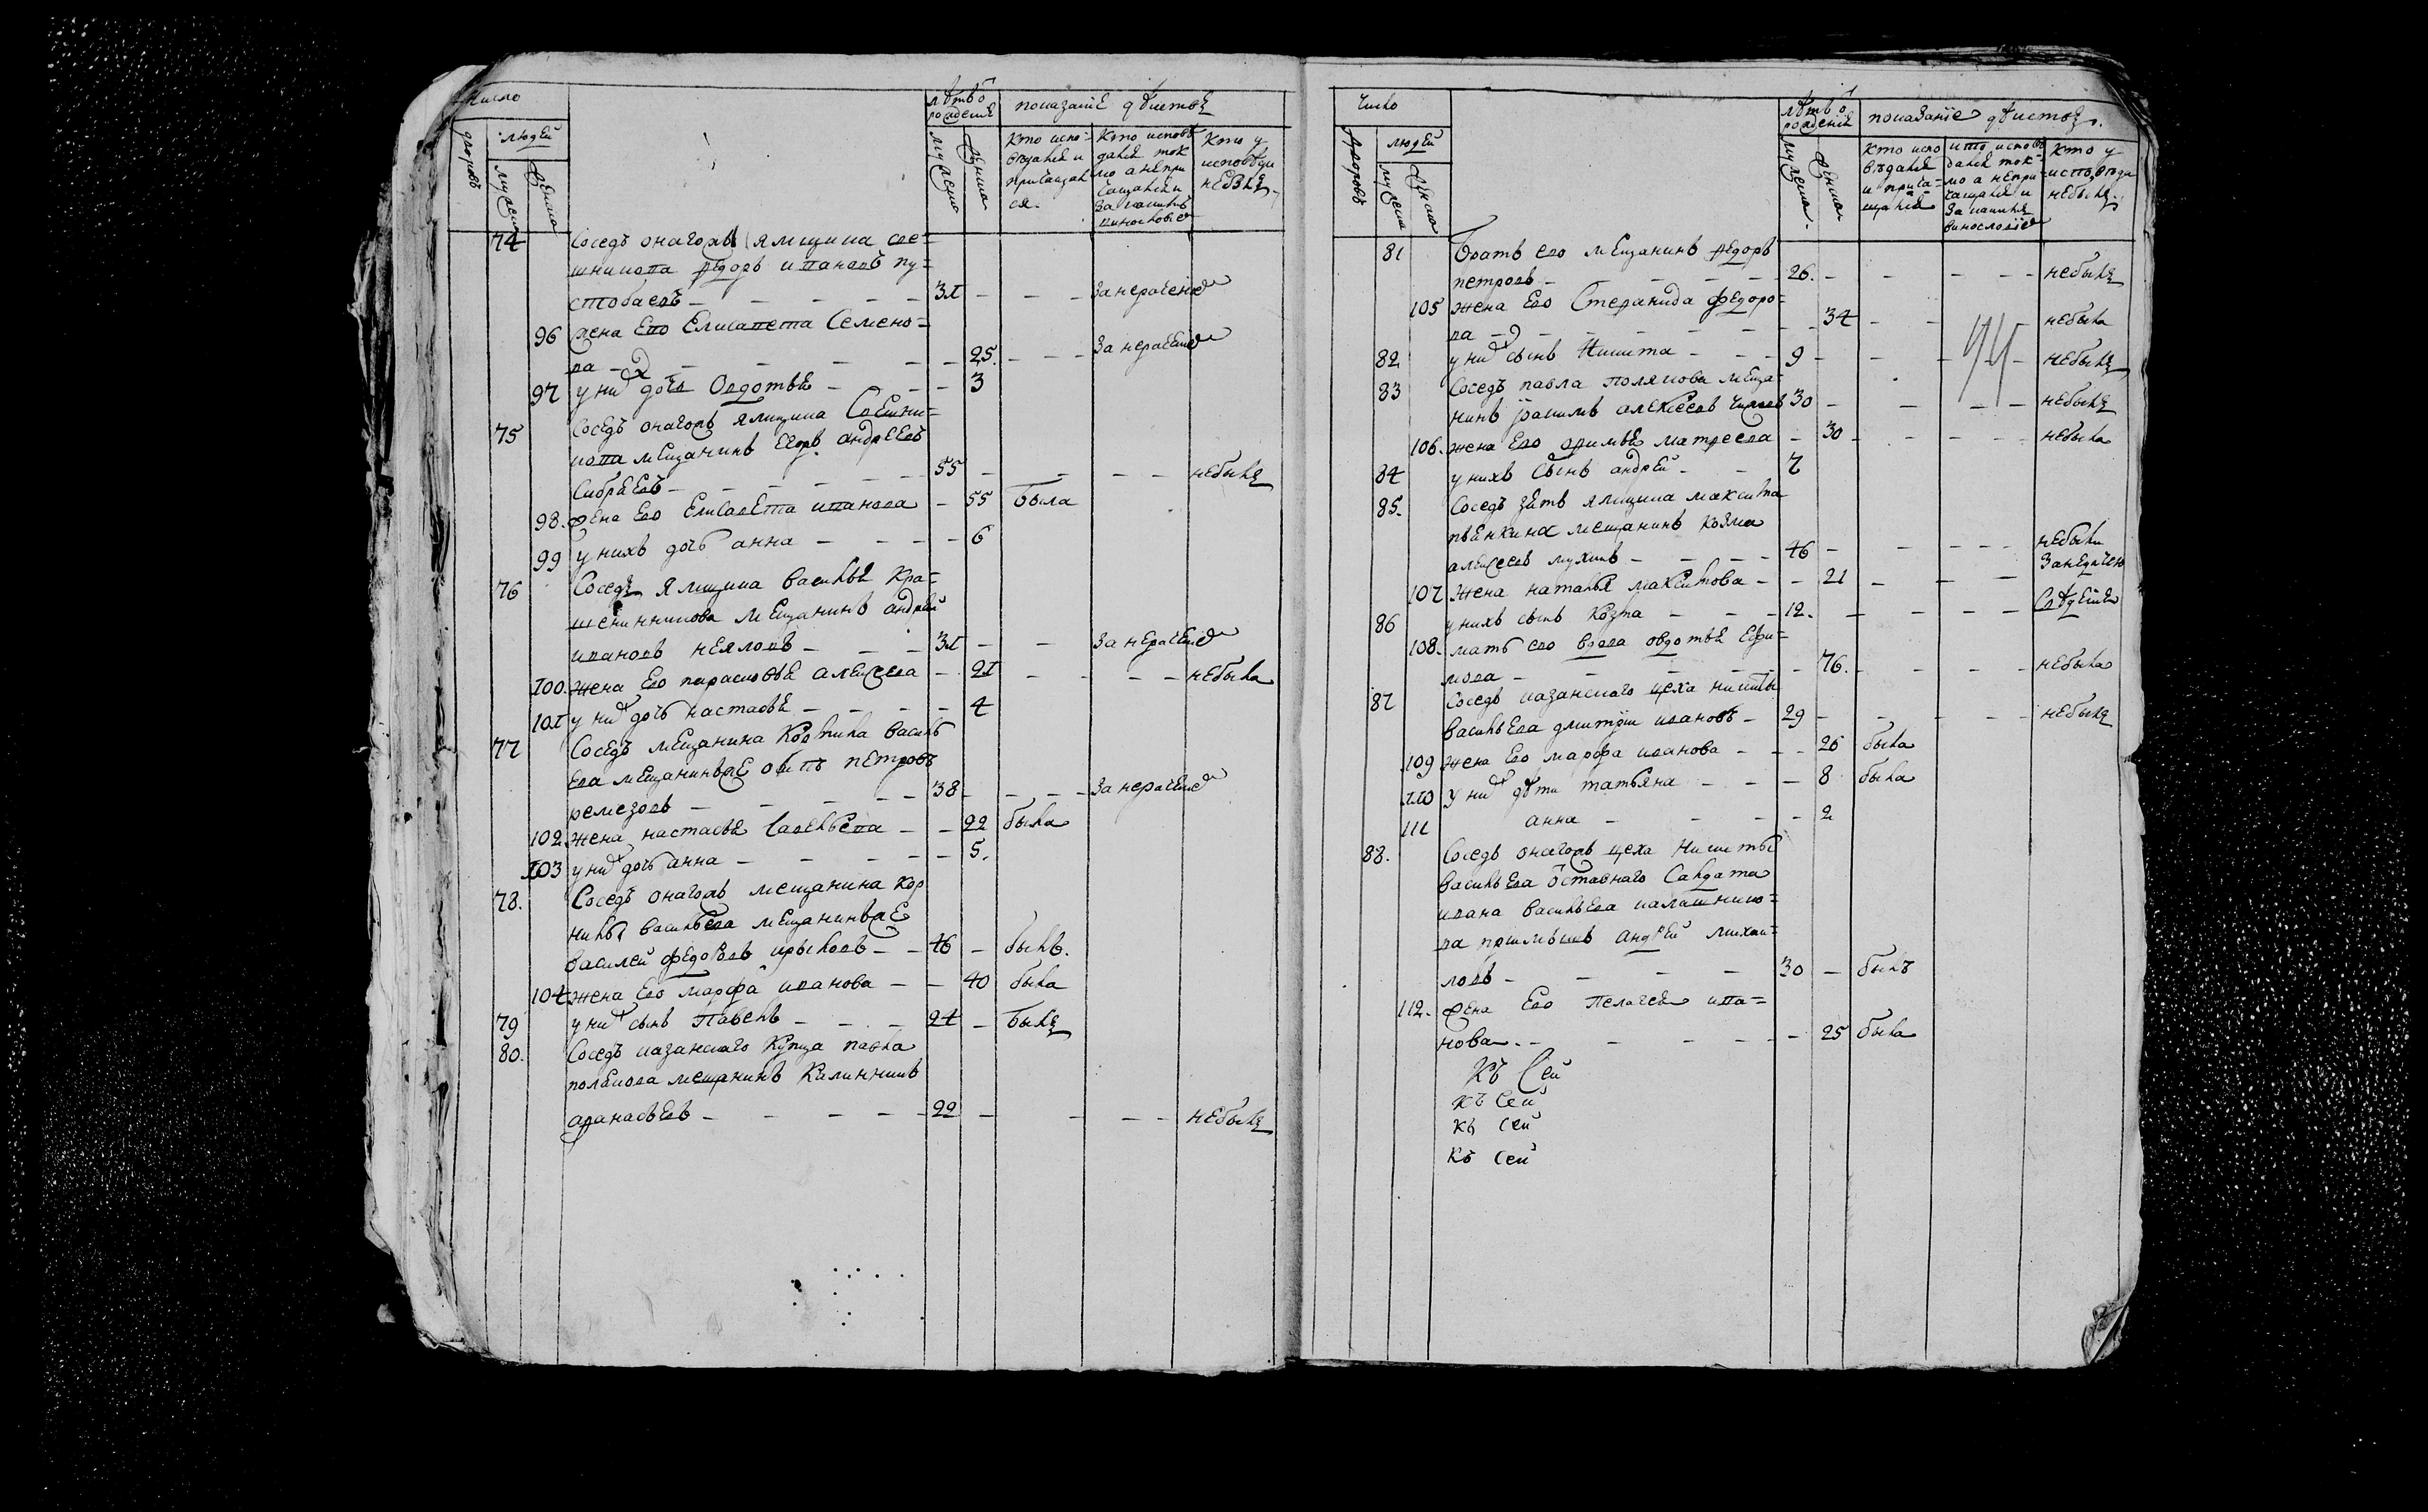 Число
людей
дворовъ
мужеска
женска
лѣтъ ѿ рождения
показание дѣйствъ
мужеска
женска
Кто испо=
вѣдался и
причащал
ся.
Кто исповѣ
дался ток
мо а не при
чащался и
за какимъ
винословие
Кто у
исповѣди
небылъ
74 Соседъ онагожъ ямщика све=
шникова федоръ ивановъ пу=
стобаевъ – – – – – 31 – – – За нерачение
96 жена Ево Елисавета Семено=
ва – – – – – 25. – – – За нерачение
97 у них дочь Овдотья – – – – 3
75 Соседъ онагожъ ямщика Свешни=
кова мещанинъ Егоръ андрѣевъ
– – – – – – 55 – – – – небылъ
98. жена Ево Елисавета иванова – 55 была
99 у нихъ дочь анна – – – – 6
76 Соседъ ямщика василья Кра=
шенинникова мещанинъ андрей
ивановъ неяловъ – – – 31 – – За нерачение
100. жена Ево парасковья алексеева – 21 – – – – небыла
101 у них дочь настасья – – – – 4
77 Соседъ мещанина Корнила василь
ева мещанинъ же петровъ
ремезовъ – – – – – 38 – – – – За нерачение
102. жена настасья Савельева – – 22 была
103 у них дочь анна – – – – – 5.
78. Соседъ онагожъ мещанина Кор
нилы васильева мещанинъ же
василей федоровъ – – 46 – былъ.
104 жена Ево марфа иванова – – 40 была
79 у них сынъ Павелъ – – – 24 – былъ
80. Соседъ казанскаго Купца павла
полякова мещанинъ
афанасьевъ – – – – – 22 – – – – небылъ
Число
людей
дворовъ
мужеска
женска
лѣтъ ѿ рождения
показание дѣйствъ.
мужеска
женска
Кто испо
вѣдался
и прича=
щался
кто исповѣ
дался ток=
мо а не при=
чащался и
за какимъ
винословие
Кто у
исповѣди
небылъ
81 братъ ево мещанинъ федоръ
петровъ – – – – – 26. – – – – небылъ
105 жена Ево Стефанида федоро=
ва – – – – – – 34 – – – небыла
94
82 у них сынъ Никита – – – 9 – – – – небылъ
83 Соседъ павла полякова меща=
нинъ алексеевъ 30 – – – – небылъ
106. жена Ево матвеева – 30 – – – – небыла
84 у нихъ Сынъ андрей – – 7
85. Соседъ зять ямщика максима
мещанинъ козма
алексеевъ мухинъ – – – – 46 – – – – – небыли
за нерачен
107 жена наталья максимова – – 21 – – –
86 у нихъ сынъ Козма – – – 12. – – – –
108. мать ево вдова овдотья ефи=
мова – – – – – – 76. – – – – небыла
87 Соседъ казанскаго цеха никиты
васильева дмитрей ивановъ – 29 – – – – – небылъ
109 жена Ево марфа иванова – – – 26 была
110 у них дѣти татьяна – – – 8 была
111 анна – – – – 2
88. Соседъ онагожъ цеха Никиты
васильева ѿставнаго Салдата
ивана васильева калашнико=
ва андрей михаи=
ловъ – – – – 30 – былъ
112. жена Ево Пелагея ива=
нова. – – – – – – 25 была
Къ Сей
Къ Сей
Къ Сей
Къ Сей